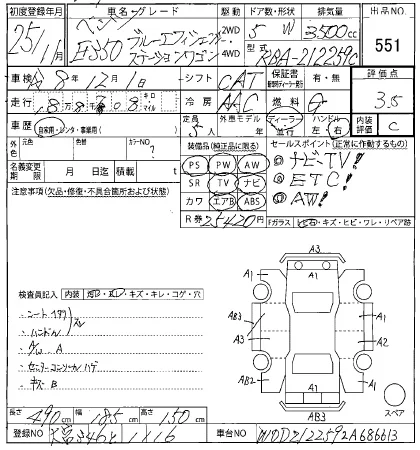 初度登録年月 車名・グレード 駆動 ドア数・形状 排気量 出品NO
25/11月 ベンツ E350 ブルーエフィシェンシー ステーションワゴン 2WD 4WD 5 W 3500cc 551
型式 RBA-212259C
車検 8年12月1日 シフト CAT 保証書 有・無 評価点
走行 8万8千 キロ マイル 冷房 AAC 燃料 G 3.5
車歴 自家用・レンタ・事業用( ) 定員 5人 外車モデル 年 ディーラー 並行 ハンドル 左 右 内装評価 C
外色 元色 色替 カラーNO ?
装備品(純正品に限る) セールスポイント(正常に作動するもの)
名義変更期限 月 日迄 積載 t
PS PW AW ①ナビ・TV!
SR TV ナビ ②ETC!
カワ エアB ABS ③AW!
注意事項(欠品・修復・不具合箇所および状態)
R券 25420円 Fガラス トビ石・キズ・ヒビ・ワレ・リペア跡
A3
A1 A1 A1
AB3 A1
A3 A2
AB2 A1 A1
AB3
スペア
検査員記入 内装 キズ・キレ・コゲ・穴
・シート
・ハンドル スレ
・A/W A
・センターコンソール ハゲ
・キズ B
長さ 490cm 幅 185cm 高さ 150cm
登録NO 大宮346 1116 車台NO WDD2122592A686613